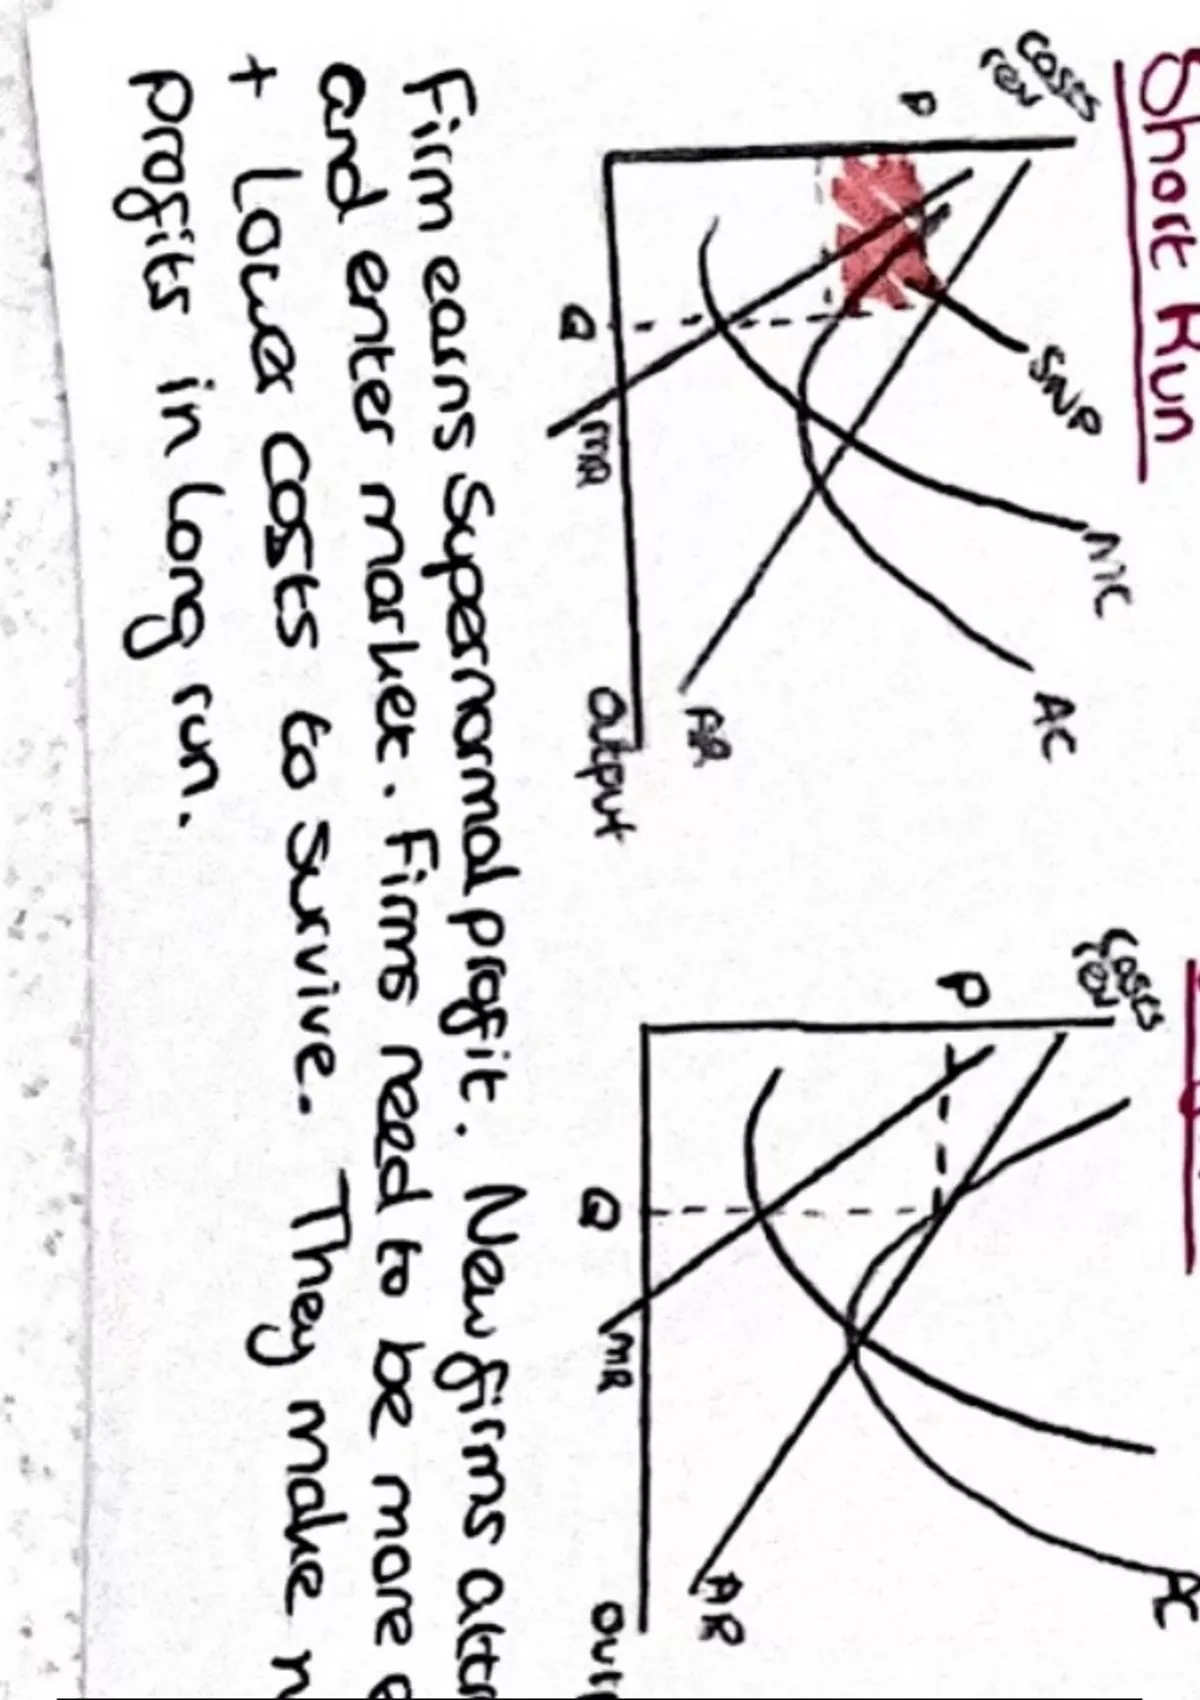 Short Run
costs
rev
P
SNP
MC
AC
AR
MR
Q
output
costs
rev
P
AC
AR
MR
Q
Firm earns supernormal profit. New firms
and enter market. Firms need to be more
+ lower costs to survive. They make
profits in long run.